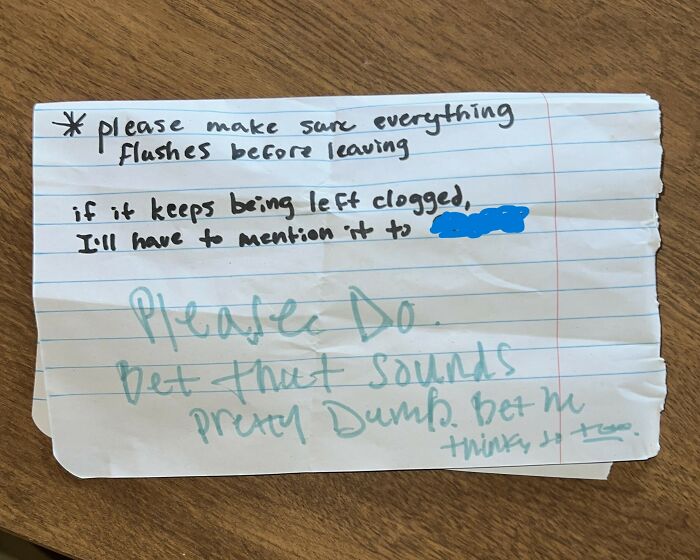 * please make sure everything
flushes before leaving
if it keeps being left clogged,
I'll have to mention it to
Please Do.
Bet that sounds
pretty Dumb. Bet he
thinks so too.